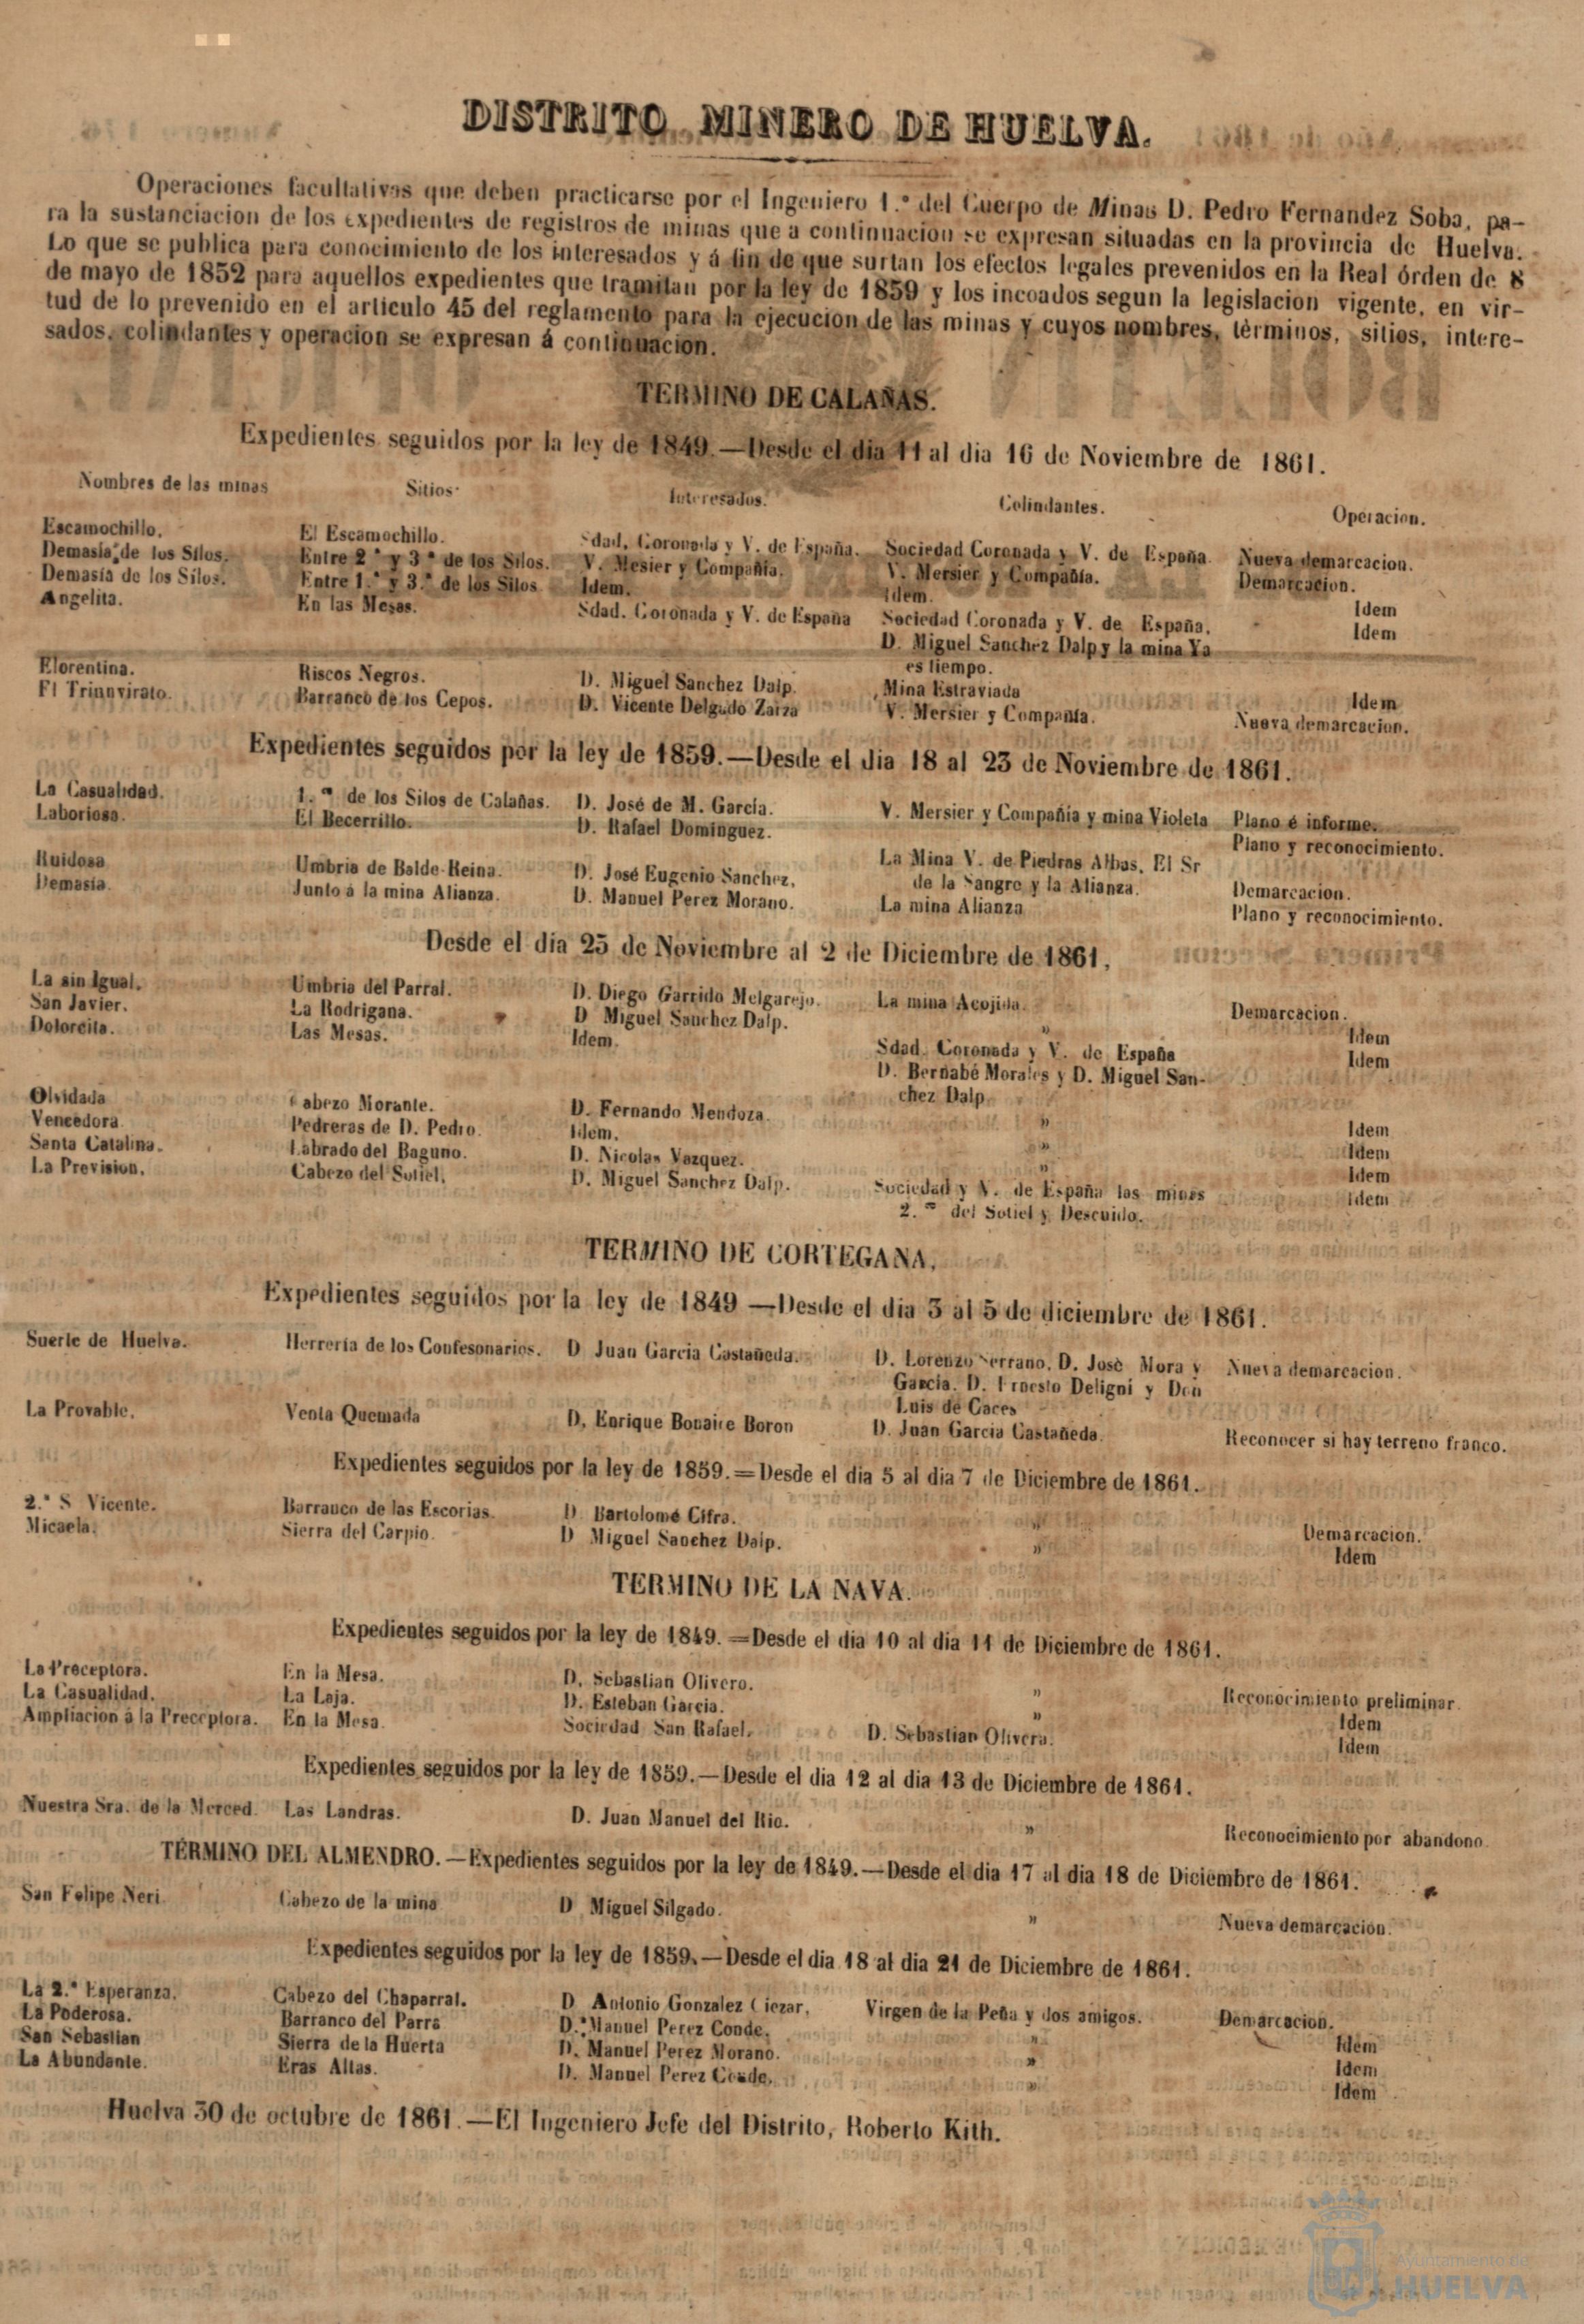 DISTRITO MINERO DE HUELVA.
Operaciones facultativas que deben practicarse por el Ingeniero 1.º del Cuerpo de Minas D. Pedro Fernandez Soba, pa-
ra la sustanciacion de los expedientes de registros de minas que a continuacion se expresan situadas en la provincia de Huelva.
Lo que se publica para conocimiento de los interesados y á fin de que surtan los efectos legales prevenidos en la Real órden de 8
de mayo de 1852 para aquellos expedientes que tramitan por la ley de 1859 y los incoados segun la legislacion vigente, en vir-
tud de lo prevenido en el articulo 45 del reglamento para la ejecucion de las minas y cuyos nombres, términos, sitios, intere-
sados, colindantes y operacion se expresan á continuacion.
TERMINO DE CALAÑAS.
Expedientes seguidos por la ley de 1849.—Desde el dia 11 al dia 16 de Noviembre de 1861.
Nombres de las minas Sitios Interesados. Colindantes. Operacion.
Escamochillo. El Escamochillo. Sdad. Coronada y V. de España. Sociedad Coronada y V. de España. Nueva demarcacion.
Demasía de los Silos. Entre 2.ª y 3.ª de los Silos. V. Mesier y Compañía. V. Mersier y Compañía. Demarcacion.
Demasía de los Silos. Entre 1.ª y 3.ª de los Silos Idem. Idem. Idem
Angelita. En las Mesas. Sdad. Coronada y V. de España Sociedad Coronada y V. de España, Idem
D. Miguel Sanchez Dalp y la mina Ya
es tiempo.
Florentina. Riscos Negros. D. Miguel Sanchez Dalp. Mina Estraviada Idem
El Triunvirato. Barranco de los Cepos. D. Vicente Delgado Zarza V. Mersier y Compañía. Nueva demarcacion.
Expedientes seguidos por la ley de 1859.—Desde el dia 18 al 23 de Noviembre de 1861.
La Casualidad. 1.ª de los Silos de Calañas. D. José de M. García. V. Mersier y Compañía y mina Violeta Plano é informe.
Laboriosa. El Becerrillo. D. Rafael Dominguez. Plano y reconocimiento.
Ruidosa Umbria de Balde-Reina. D. José Eugenio Sanchez, La Mina V. de Piedras Albas, El Sr
de la Sangre y la Alianza. Demarcacion.
Demasía. Junto á la mina Alianza. D. Manuel Perez Morano. La mina Alianza Plano y reconocimiento.
Desde el dia 25 de Noviembre al 2 de Diciembre de 1861.
La sin Igual. Umbria del Parral. D. Diego Garrido Melgarejo. La mina Acojida. Demarcacion.
San Javier. La Rodrigana. D Miguel Sanchez Dalp. » Idem
Dolorcita. Las Mesas. Idem. Sdad. Coronada y V. de España Idem
D. Bernabé Morales y D. Miguel San-
chez Dalp
Olvidada Cabezo Morante. D. Fernando Mendoza. » Idem
Vencedora Pedreras de D. Pedro. Idem. » Idem
Santa Catalina. Labrado del Baguno. D. Nicolas Vazquez. » Idem
La Prevision. Cabezo del Sotiel. D. Miguel Sanchez Dalp. Sociedad y V. de España las minas Idem
2.ª del Sotiel y Descuido.
TERMINO DE CORTEGANA.
Expedientes seguidos por la ley de 1849 —Desde el dia 3 al 5 de diciembre de 1861.
Suerte de Huelva. Herrería de los Confesonarios. D Juan Garcia Castañeda. D. Lorenzo Serrano, D. José Mora y Nueva demarcacion.
Garcia. D. Ernesto Deligni y Don
Luis de Caces
La Provable. Venta Quemada D. Enrique Bonaire Boron D. Juan Garcia Castañeda. Reconocer si hay terreno franco.
Expedientes seguidos por la ley de 1859.=Desde el dia 5 al dia 7 de Diciembre de 1861.
2.ª S Vicente. Barranco de las Escorias. D Bartolomé Cifra. » Demarcacion.
Micaela. Sierra del Carpio. D Miguel Sanchez Dalp. » Idem
TERMINO DE LA NAVA.
Expedientes seguidos por la ley de 1849.=Desde el dia 10 al dia 11 de Diciembre de 1861.
La Preceptora. En la Mesa. D. Sebastian Olivero. » Reconocimiento preliminar.
La Casualidad. La Laja. D. Esteban Garcia. » Idem
Ampliacion á la Preceptora. En la Mesa. Sociedad San Rafael. D. Sebastian Olivera. Idem
Expedientes seguidos por la ley de 1859.—Desde el dia 12 al dia 13 de Diciembre de 1861.
Nuestra Sra. de la Merced. Las Landras. D. Juan Manuel del Rio. » Reconocimiento por abandono
TÉRMINO DEL ALMENDRO.—Expedientes seguidos por la ley de 1849.—Desde el dia 17 al dia 18 de Diciembre de 1861.
San Felipe Neri. Cabezo de la mina D Miguel Silgado. » Nueva demarcacion.
Expedientes seguidos por la ley de 1859.—Desde el dia 18 al dia 21 de Diciembre de 1861.
La 2.ª Esperanza. Cabezo del Chaparral. D Antonio Gonzalez Ciezar, Virgen de la Peña y dos amigos. Demarcacion.
La Poderosa. Barranco del Parra D. Manuel Perez Conde. » Idem
San Sebastian Sierra de la Huerta D. Manuel Perez Morano. » Idem
La Abundante. Eras Altas. D. Manuel Perez Conde. » Idem
Huelva 30 de octubre de 1861.—El Ingeniero Jefe del Distrito, Roberto Kith.
Ayuntamiento de
HUELVA